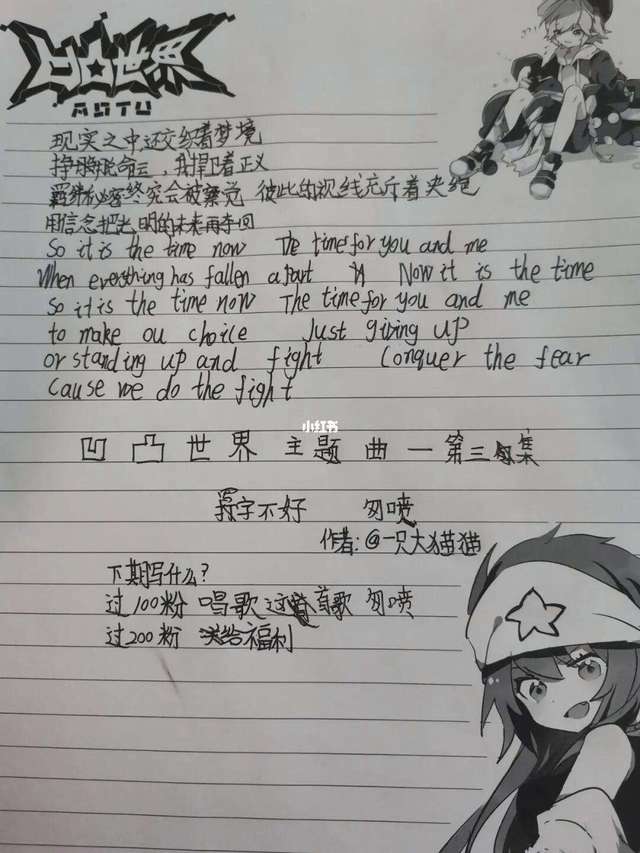 凹凸世界
AOTU
现实之中还交织着梦境
挣脱命运,我捍卫着正义
羁绊终究会被察觉 彼此的视线充斥着夹缝
用信念把光明的未来再夺回
So it is the time now The time for you and me
When everything has fallen apart Now it is the time
So it is the time now The time for you and me
to make ou choice Just giving up
or standing up and fight Conquer the fear
Cause we do the fight
小红书
凹凸世界主题曲一第三集
字不好 勿喷
作者:@一只大猫猫
下期写什么?
过100粉 唱歌 这首歌 勿喷
过200粉 送给福利